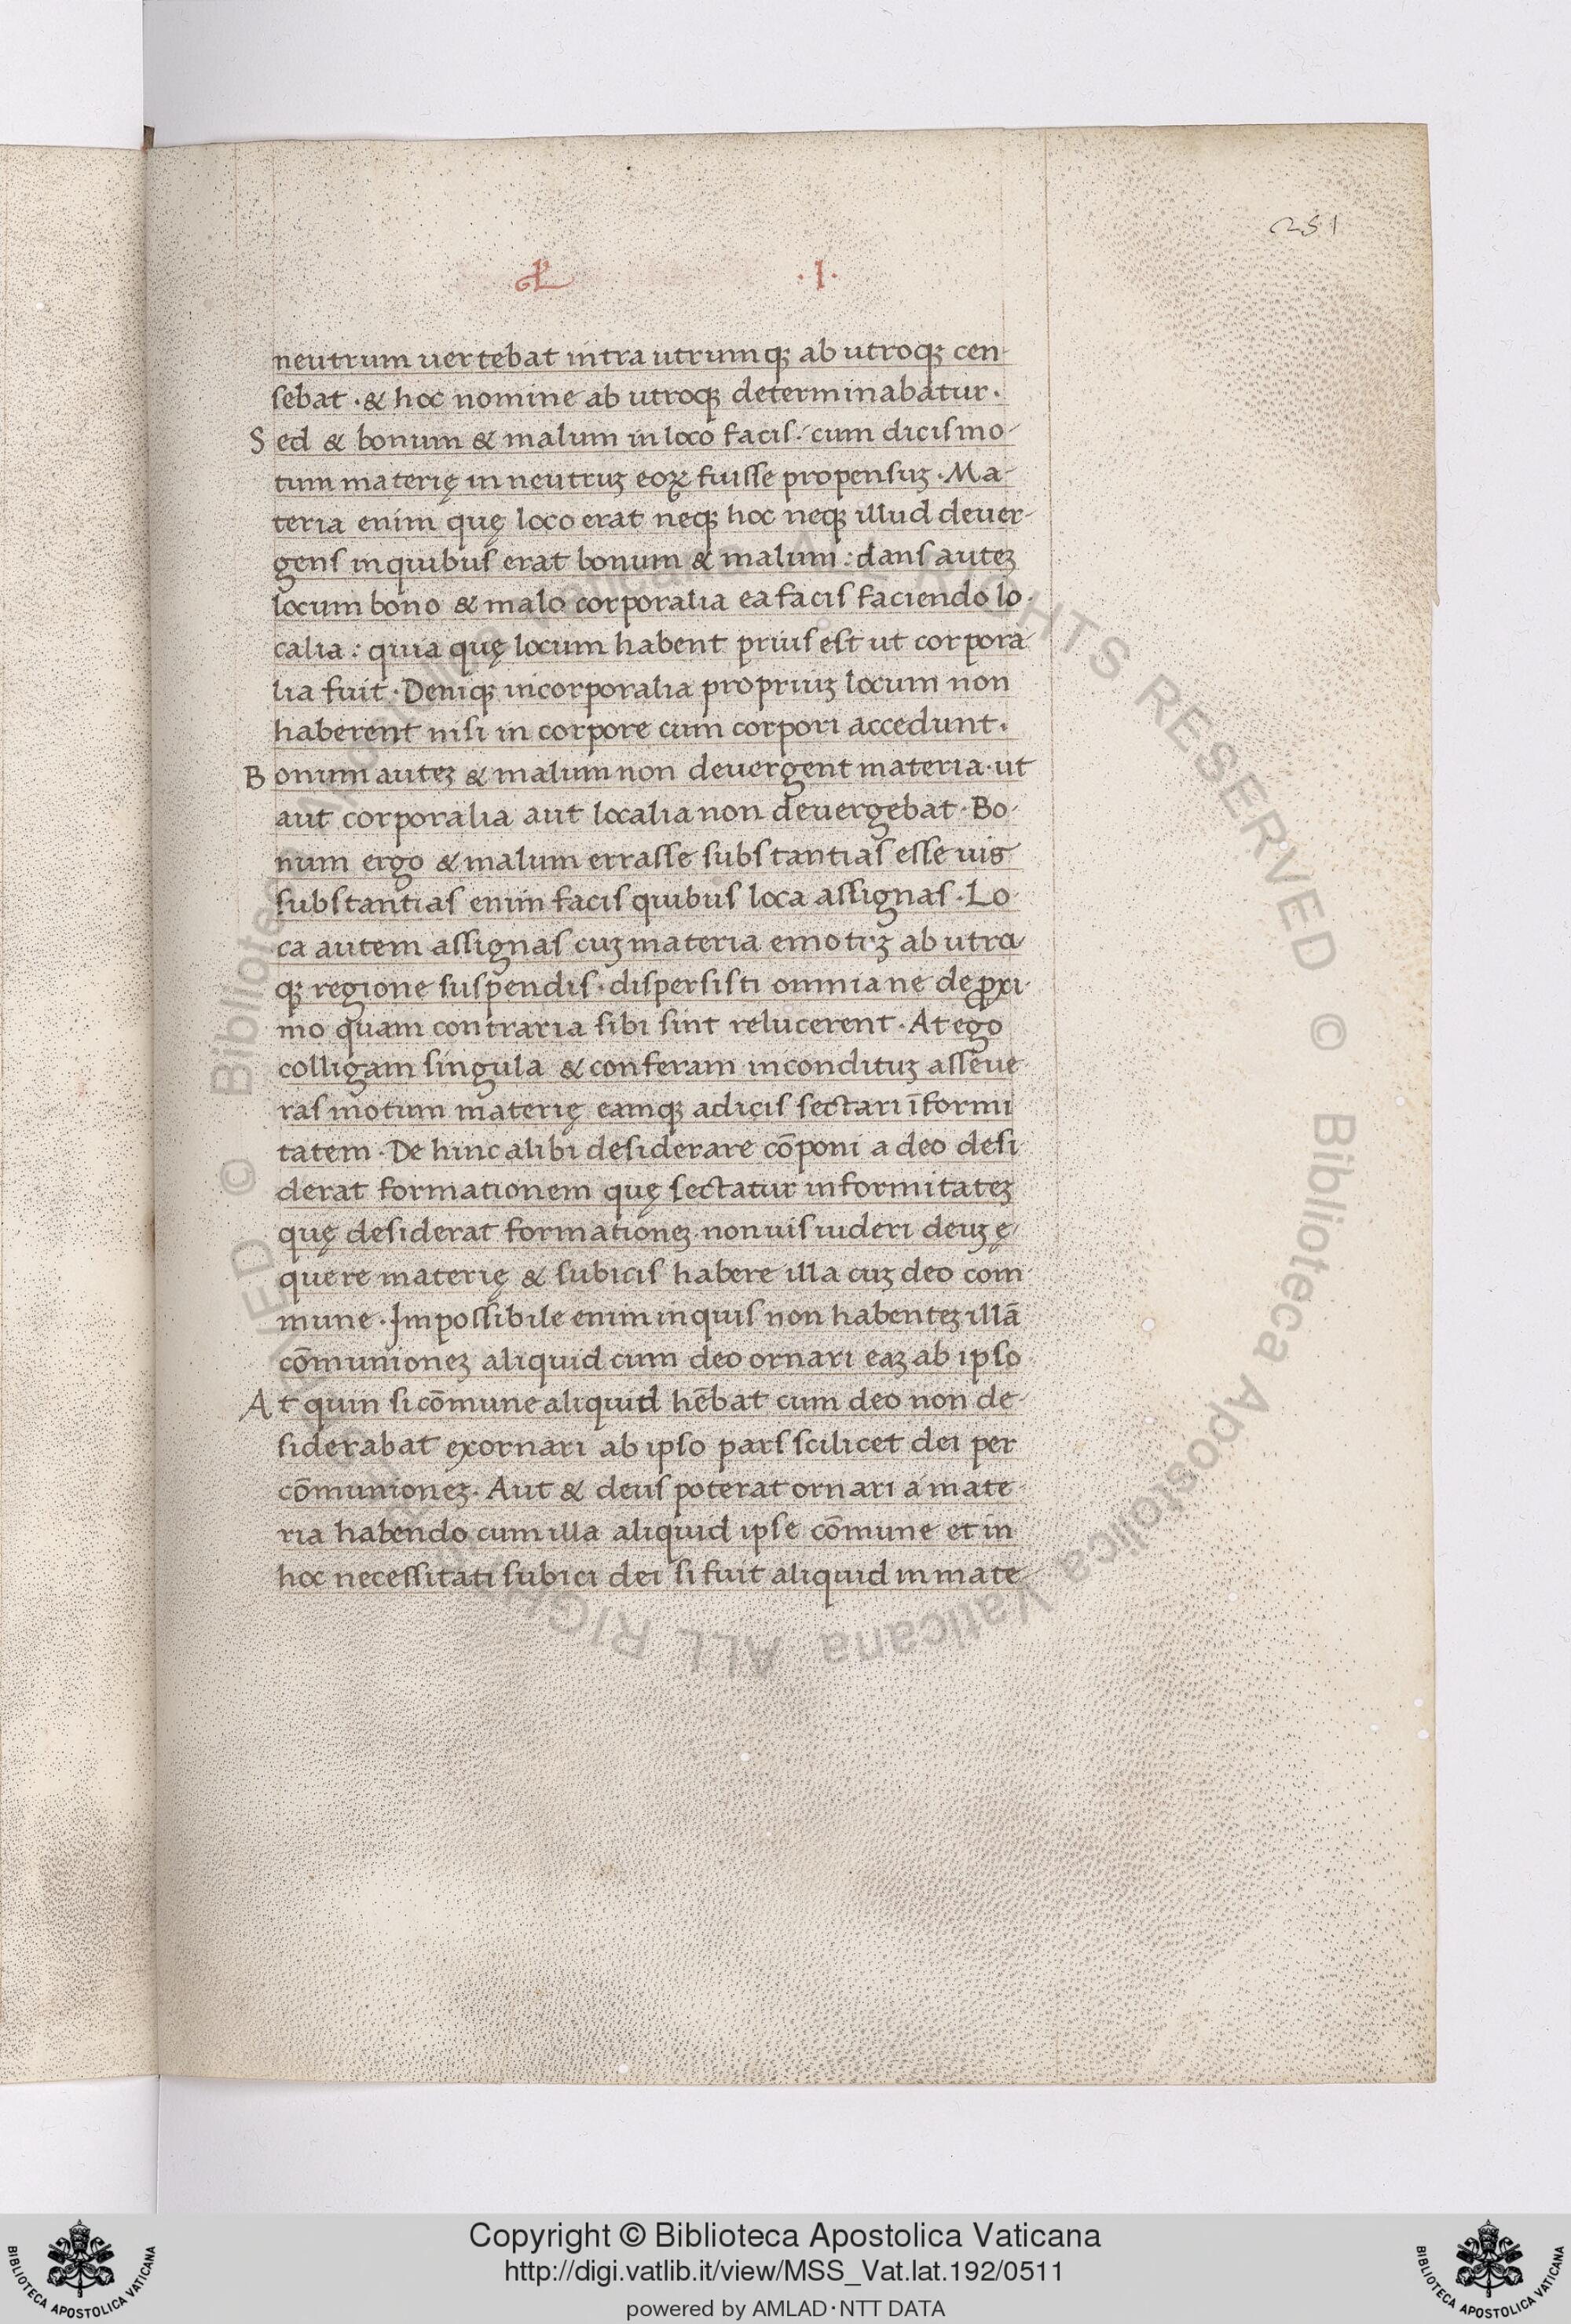 251
· I ·
neutrum uertebat intra utrumqꝫ ab utroqꝫ cen-
sebat · & hoc nomine ab utroqꝫ determinabatur ·
Sed & bonum & malum in loco facis · cum dicis mo-
tum materię in neutruꝫ eoꝝ fuisse propensuꝫ · Ma-
teria enim quę loco erat neqꝫ hoc neqꝫ illud deuer-
gens in quibus erat bonum & malum : dans auteꝫ
locum bono & malo corporalia ea facis faciendo lo-
calia : quia quę locum habent prius est ut corpora-
lia fuit · Deniqꝫ incorporalia propriuꝫ locum non
haberent nisi in corpore cum corpori accedunt ·
Bonum auteꝫ & malum non deuergent materia · ut
aut corporalia aut localia non deuergebat · Bo-
num ergo & malum errasse substantias esse uis
substantias enim facis quibus loca assignas · Lo-
ca autem assignas cuꝫ materia emotuꝫ ab utra-
qꝫ regione suspendis · dispersisti omnia ne de ꝓxi-
mo quam contraria sibi sint relucerent · At ego
colligam singula & conferam incondituꝫ asseue-
ras motum materię eamqꝫ adicis sectari īformi
tatem · De hinc alibi desiderare cōponi a deo desi
derat formationem quę sectatur informitateꝫ
quę desiderat formationeꝫ · non uis uideri deuꝫ ę-
quere materię & subicis habere illa cuꝫ deo com
mune · Impossibile enim inquis non habenteꝫ illā
cōmunioneꝫ aliquid cum deo ornari eaꝫ ab ipso ·
At quin si cōmune aliquid hēbat cum deo non de-
siderabat exornari ab ipso pars scilicet dei per
cōmunioneꝫ · Aut & deus poterat ornari a mate-
ria habendo cum illa aliquid ipse cōmune et in
hoc necessitati subici dei si fuit aliquid in mate-
© Biblioteca Apostolica Vaticana ALL RIGHTS RESERVED
Copyright © Biblioteca Apostolica Vaticana
http://digi.vatlib.it/view/MSS_Vat.lat.192/0511
powered by AMLAD·NTT DATA
BIBLIOTECA APOSTOLICA VATICANA
BIBLIOTECA APOSTOLICA VATICANA